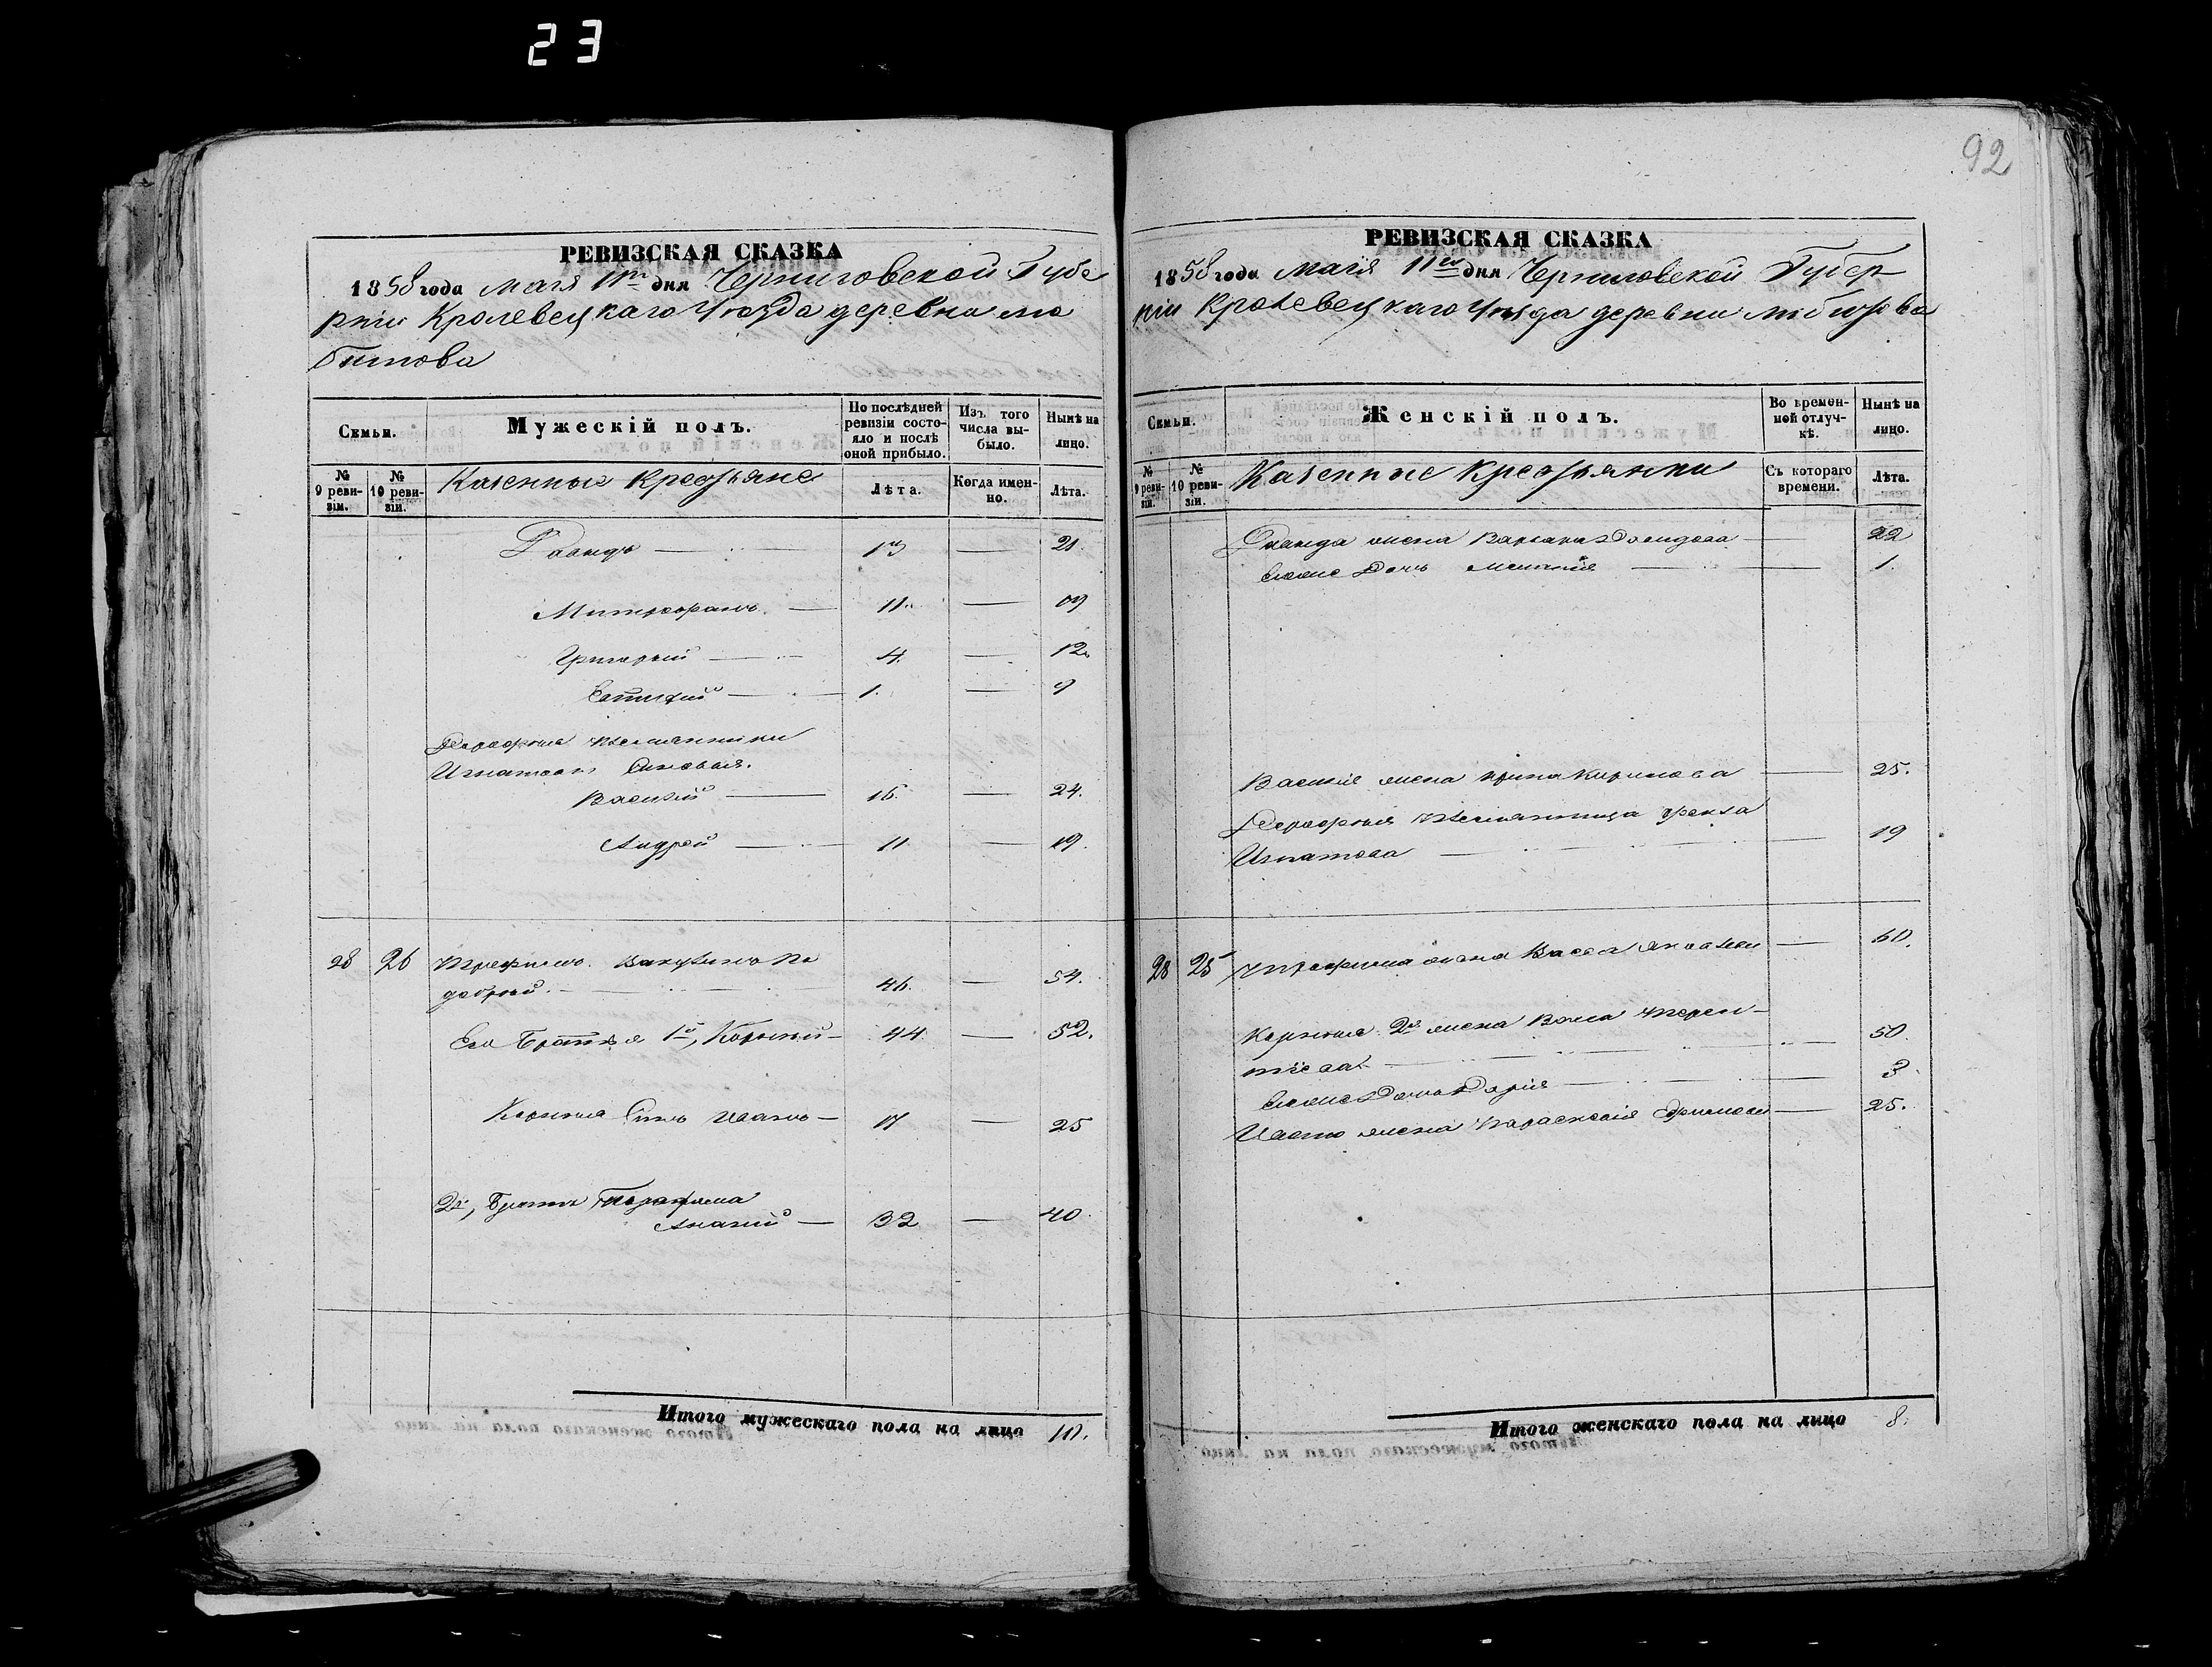 23
92
РЕВИЗСКАЯ СКАЗКА
1858 года мая 11го дня Черниговской Губе
рніи Кролевецкаго Уезда деревни лю
битова
Семьи.
Мужескій полъ.
По послѣдней ревизіи состояло и послѣ оной прибыло.
Изъ того числа выбыло.
Нынѣ на лицо.
№ 9 ревизіи.
№ 10 ревизіи.
Казенные Крестьяне
Лѣта.
Когда именно.
Лѣта.
Давидъ — 13 — 21.
Митрофанъ — 11. —
Григорий — 4. — 12.
Евтихий — 1. — 9
племянники
Игнатовы Сыновья.
Василий — 16. — 24.
Андрей — 11 — 19.
28 26 Трофимъ
46. — 54.
Его Братья 1й, Корний — 44. — 52.
Корния Сынъ Иванъ — 17 — 25
2й, Братъ Трофима
Ананий — 32 — 40.
Итого мужескаго пола на лицо 10.
РЕВИЗСКАЯ СКАЗКА
1858 года маія 11го дня Черниговской Губер
ніи Кролевецкаго Уезда деревни любитова
Семьи.
Женскій полъ.
Во временной отлучкѣ.
Нынѣ на лицо.
№ 9 ревизіи.
№ 10 ревизіи.
Казенные Крестьянки
Съ котораго времени.
Лѣта.
Давида жена Варвара Давидова — 22
Дочь — 1.
Василія жена Ирина Кирилова — 25.
племянница Фекла
Игнатова — 19
28 25 Трофима жена Васса Яковлева — 60.
Корнія 2я жена Терен-
тіева — 50
Дочь Дарія — 3.
Ивана жена Параскевія — 25.
Итого женскаго пола на лицо 8.